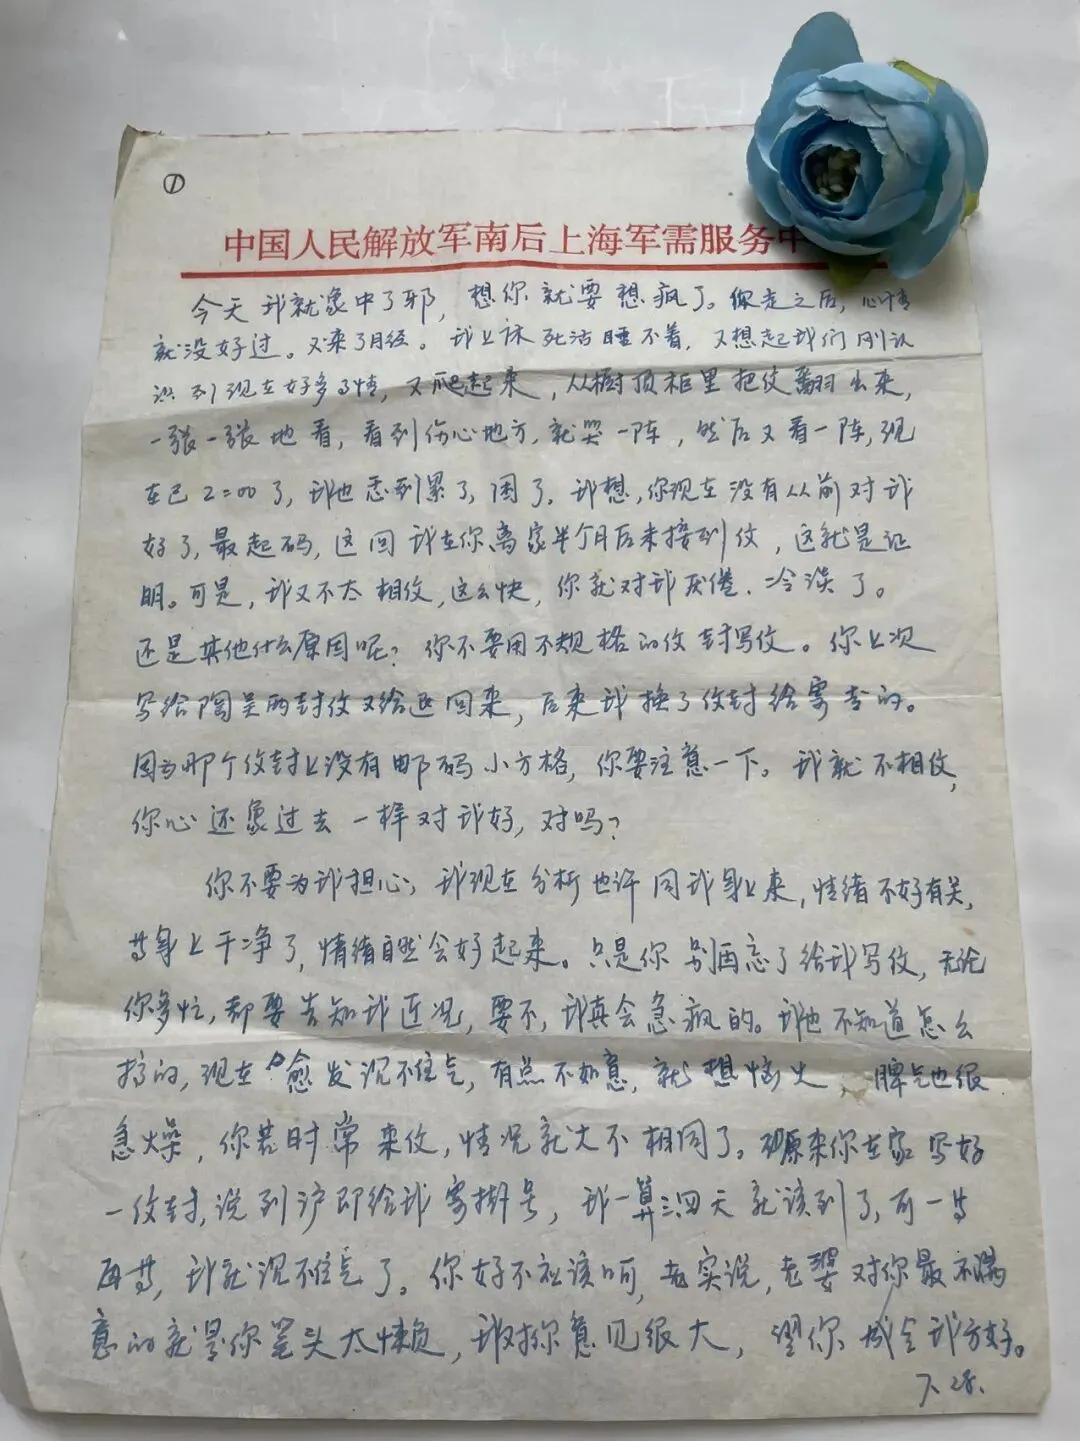 ①
中国人民解放军南后上海军需服务中
今天我就象中了邪，想你就要想疯了。你走之后，心情
就没好过。又来了月经。我上床死活睡不着，又想起我们刚认
识到现在好多事情，又爬起来，从橱顶柜里把信翻出来，
一张一张地看，看到伤心地方，就哭一阵，然后又看一阵，现
在已2:00了，我也感到累了，困了。我想，你现在没有从前对我
好了，最起码，这回我在你离家半个月后未接到信，这就是证
明。可是，我又不太相信，这么快，你就对我厌倦、冷淡了。
还是其他什么原因呢？你不要用不规格的信封写信。你上次
写给陶吴两封信又给退回来，后来我换了信封给寄去的。
因为那个信封上没有邮码小方格，你要注意一下。我就不相信，
你心还象过去一样对我好，对吗？
你不要为我担心，我现在分析也许同我身上来，情绪不好有关，
等身上干净了，情绪自然会好起来。只是你别再忘了给我写信，无论
你多忙，都要告知我近况，要不，我真会急疯的。我也不知道怎么
搞的，现在愈发沉不住气，有点不如意，就想恼火，脾气也很
急燥，你若时常来信，情况就大不相同了。原来你在家写好
一信封，说到沪即给我寄挂号，我一算三四天就该到了，可一等
再等，我就沉不住气了。你好不应该呵，老实说，老婆对你最不满
意的就是你笔头太懒，我对你意见很大，望你成全我方好。
7.28.